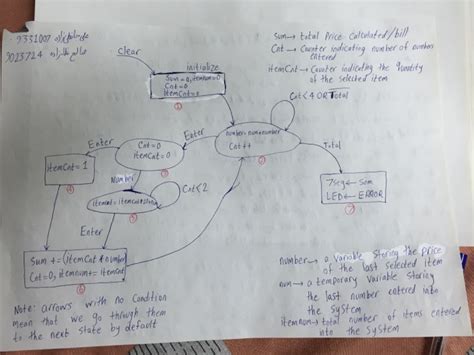 9331007
9023724
clear
initialize
Sum = 0, itemnum=0
Cnt=0
ItemCnt=0
①
sum → total Price Calculated/bill
Cnt → Counter indicating number of numbers
entered
itemCnt → Counter indicating the quantity
of the selected item
Cnt<4 OR Total
Enter
Enter
number= num+number
Cnt++
②
Total
Cnt=0
itemCnt=0
③
itemCnt=1
④
Number
Cnt<2
⑤
Enter
7Seg ← Sum
LED ← ERROR
⑦
Sum += (ItemCnt * number)
Cnt=0, itemnum+= itemCnt
⑥
Note: arrows with no Condition
mean that we go through them
to the next state by default
number → a variable storing the price
of the last selected item
num → a temporary variable storing
the last number entered into
the System
itemnum → total number of items entered
into the System